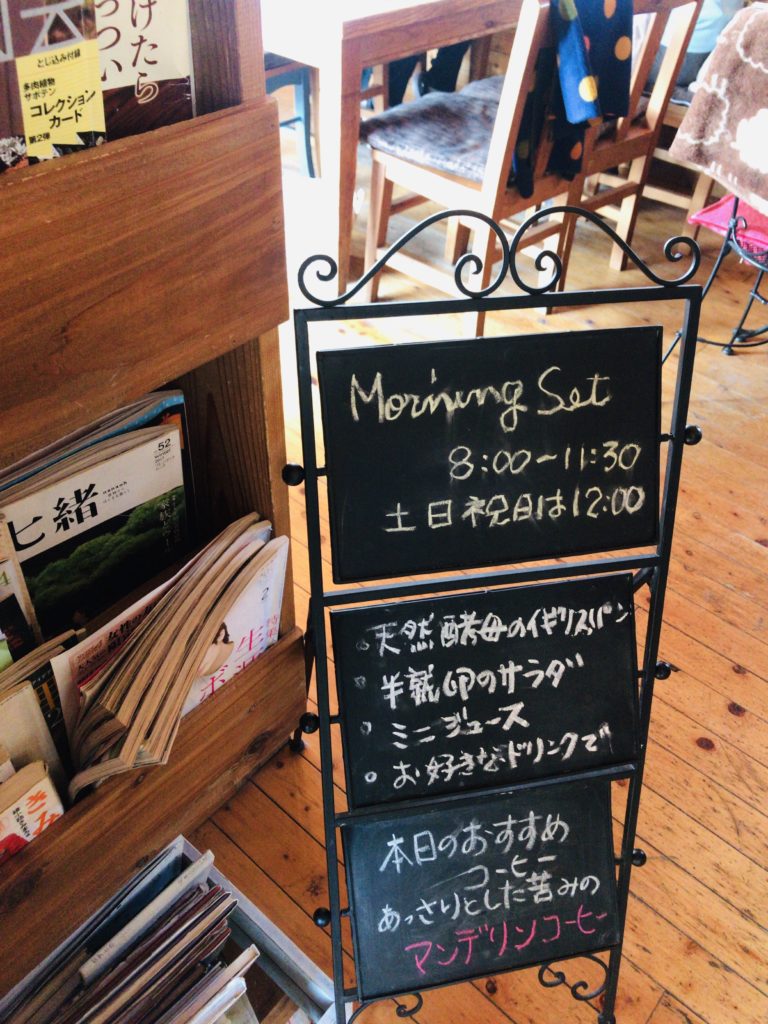 けたら
つい
とじ込み付録
多肉植物
サボテン
コレクション
カード
第2弾
52
七緒
Morning Set
8:00〜11:30
土日祝日は12:00
天然酵母のイギリスパン
半熟卵のサラダ
ミニジュース
お好きなドリンクで
本日のおすすめ
コーヒー
あっさりとした苦みの
マンデリンコーヒー